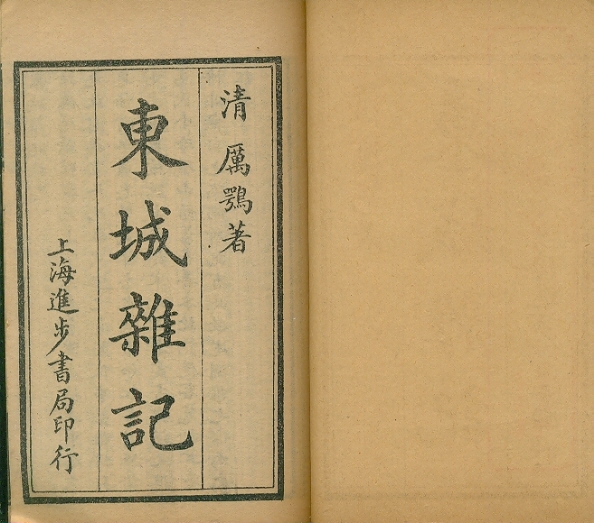 清 厲鶚著
東城雜記
上海進步書局印行